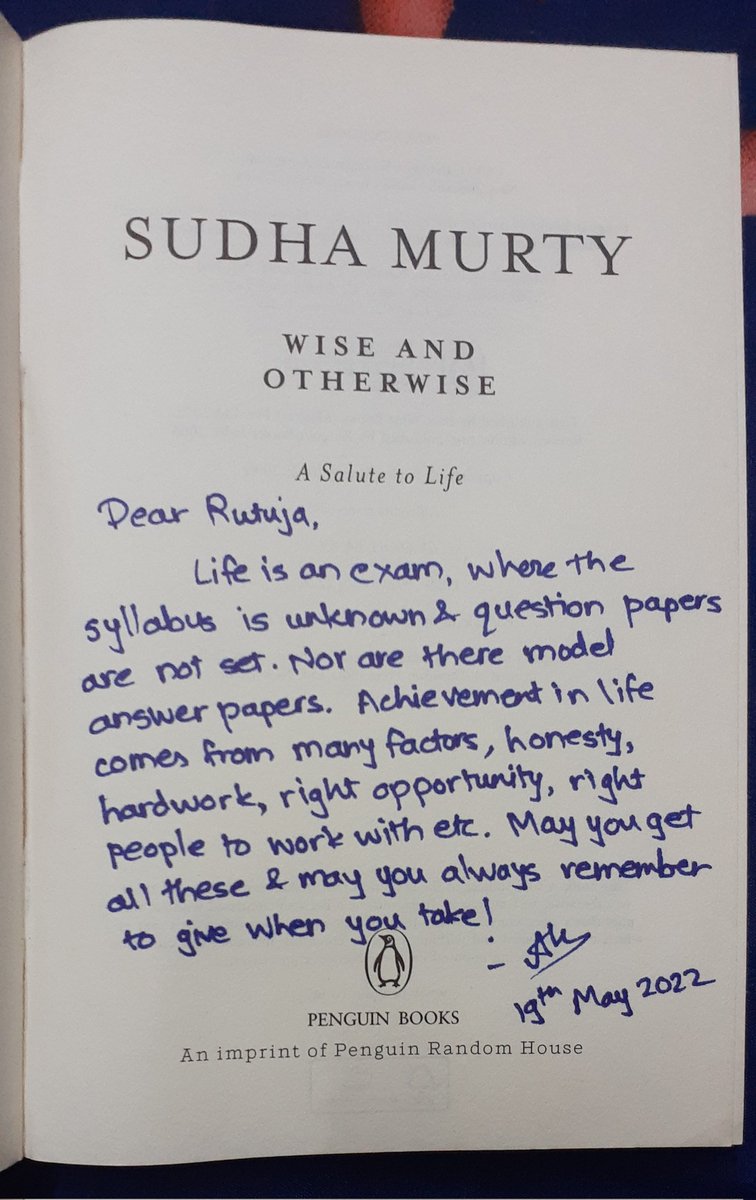 SUDHA MURTY
WISE AND
OTHERWISE
A Salute to Life
Dear Rutuja,
Life is an exam, where the
syllabus is unknown & question papers
are not set. Nor are there model
answer papers. Achievement in life
comes from many factors, honesty,
hardwork, right opportunity, right
people to work with etc. May you get
all these & may you always remember
to give when you take!
19th May 2022
PENGUIN BOOKS
An imprint of Penguin Random House